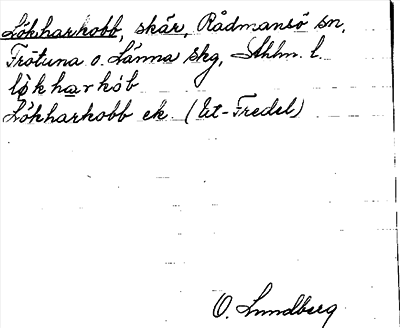 Lökharkobb, skär, Rådmansö sn,
Frötuna o. Länna skg, Sthlm. l.
lö̀kharkób
Lökharkobb ek. (Et-Fredel)
O. Lundberg